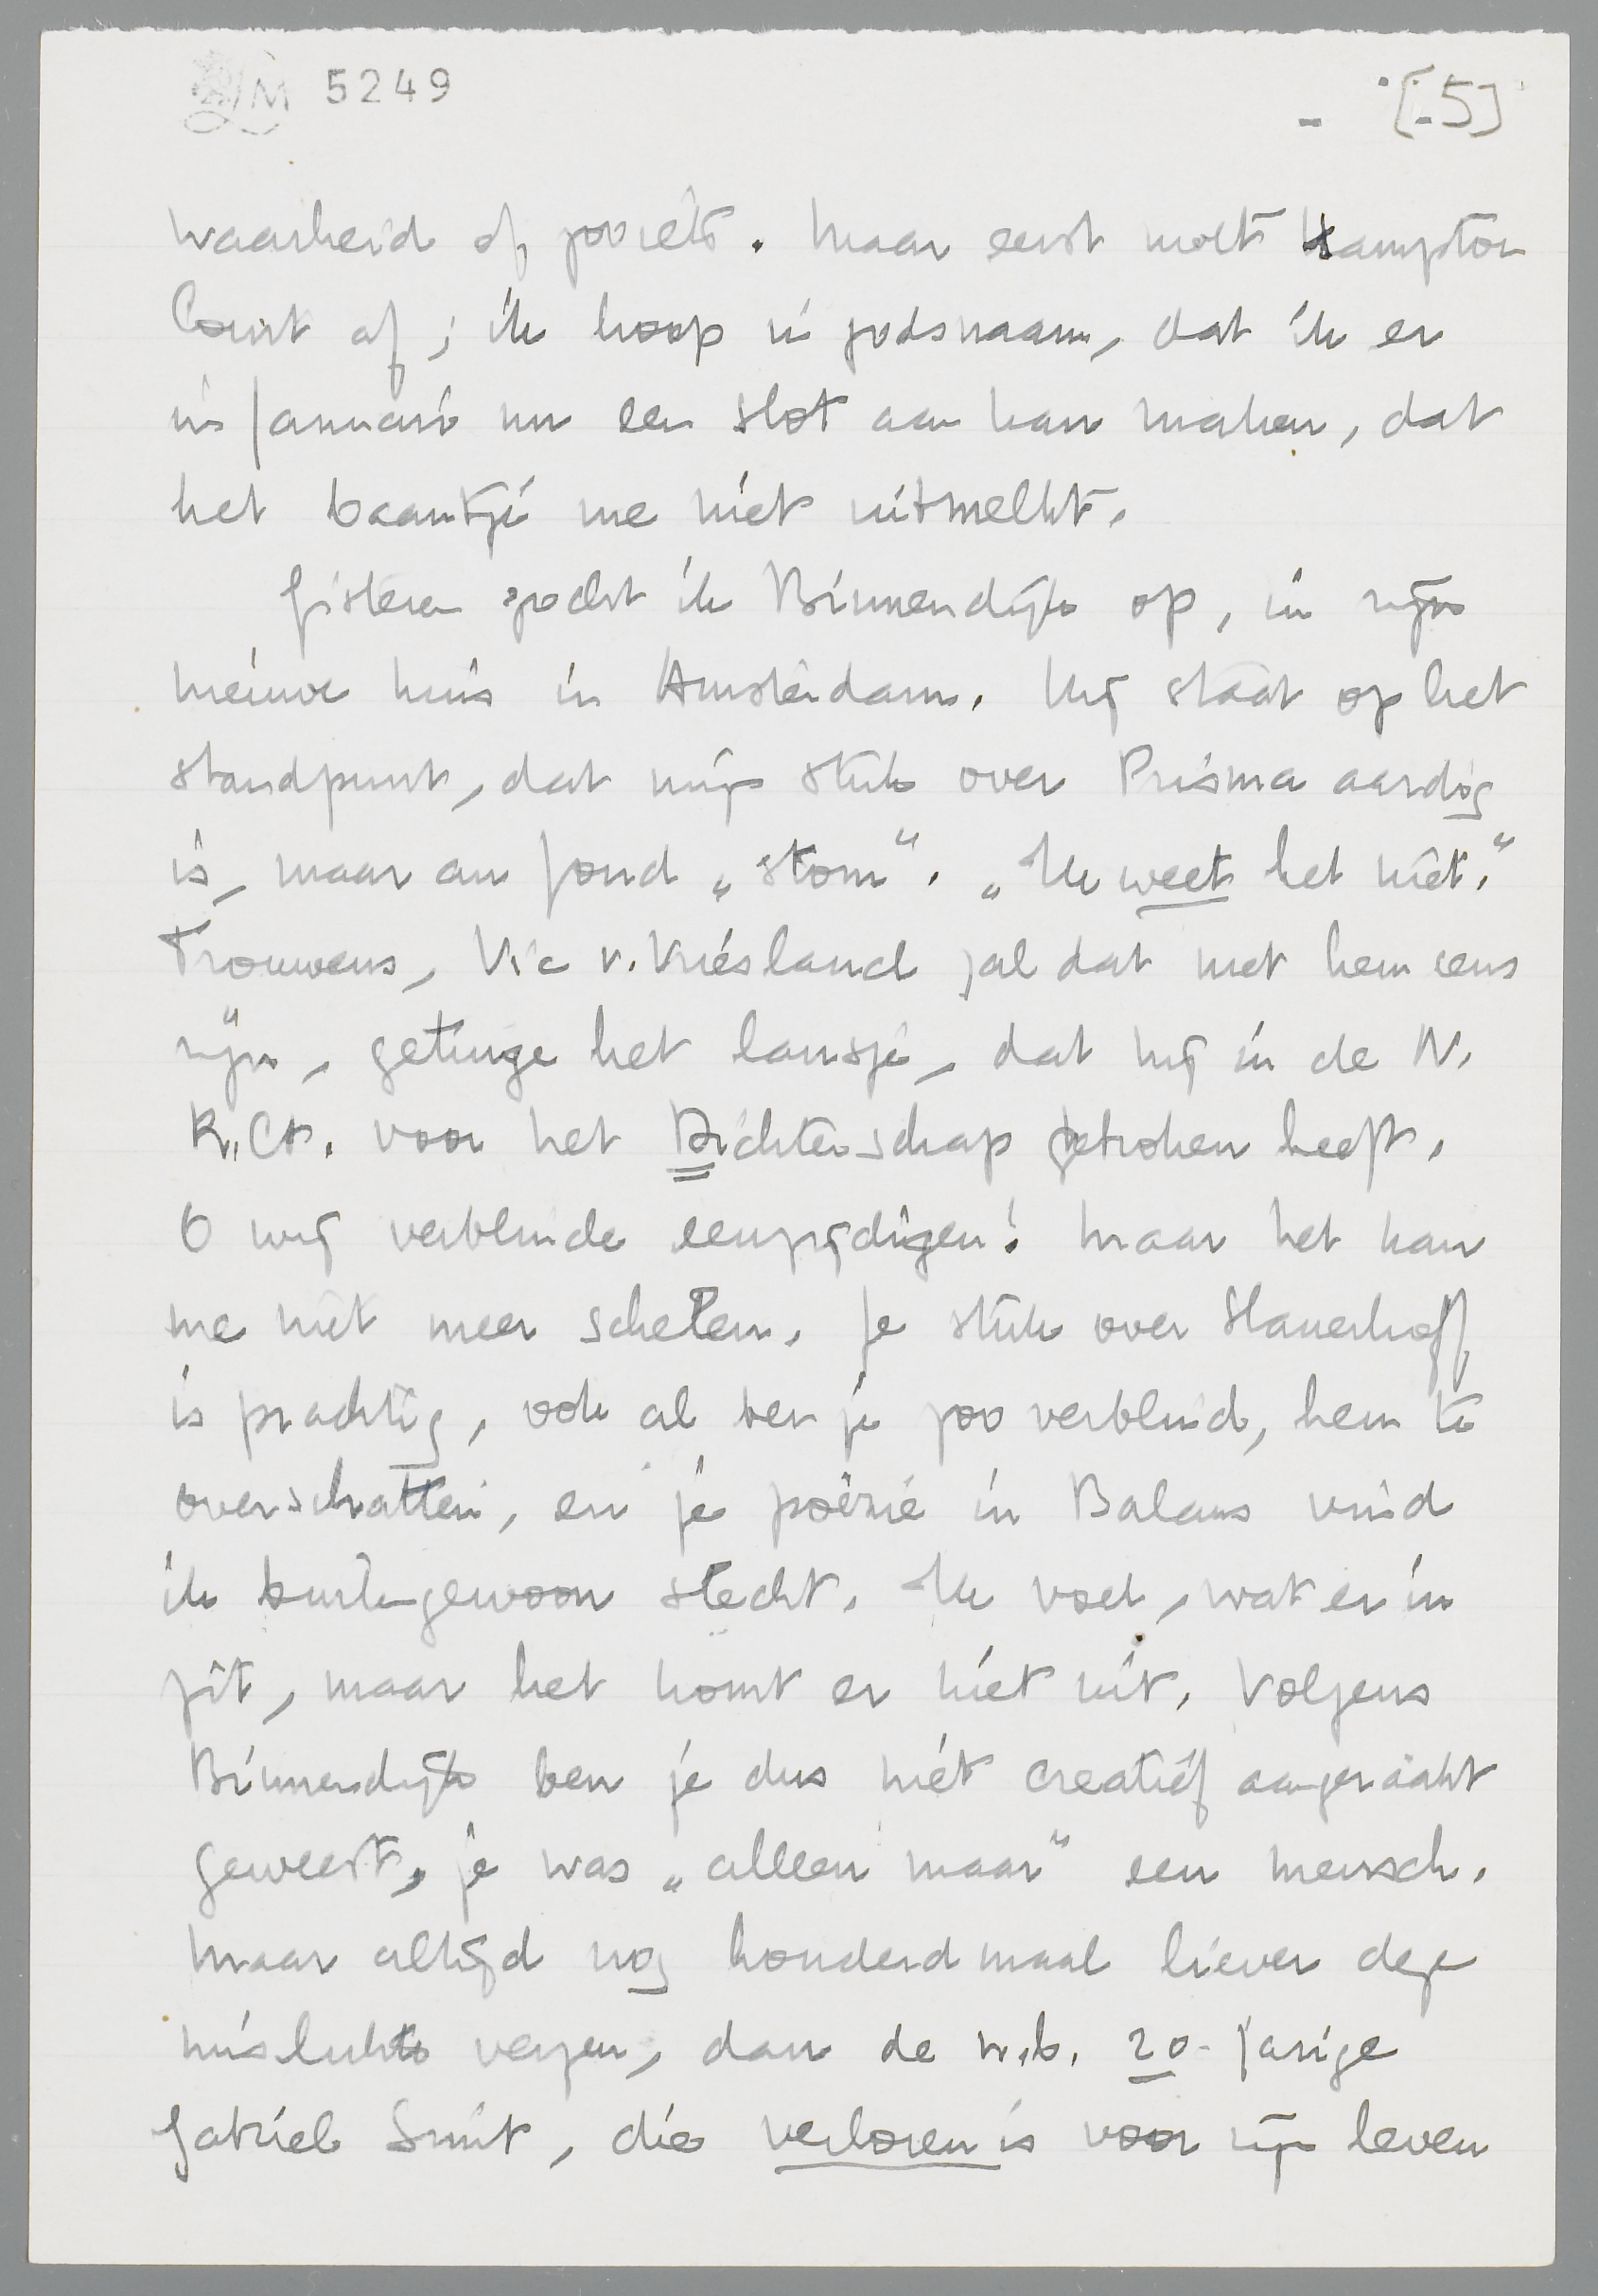 LM 5249
- [-5]
waarheid of zooiets. Maar eerst moet Hampton
Court af; ik hoop in godsnaam, dat ik er
in Januari nu een slot aan kan maken, dat
het baantje me niet uitmelkt.
Gisteren zocht ik Binnendijk op, in zijn
nieuwe huis in Amsterdam. Hij staat op het
standpunt, dat mijn stuk over Prisma aardig
is, maar au fond „stom”. „Ik weet het niet.”
Trouwens, Vic v. Vriesland zal dat met hem eens
zijn, getuige het lansje, dat hij in de N.
R.Ct. voor het Dichterschap gebroken heeft.
O wij verblinde eenzijdigen! Maar het kan
me niet meer schelen. Je stuk over Slauerhoff
is prachtig, ook al ben je zoo verblind, hem te
overschatten, en je poëzie in Balans vind
ik buitengewoon slecht. Ik voel, wat er in
zit, maar het komt er niet uit. Volgens
Binnendijk ben je dus niet creatief aangeraakt
geweest, je was „alleen maar” een mensch.
Maar altijd nog honderdmaal liever deze
mislukte verzen, dan de n.b. 20-jarige
Gabriël Smit, die verloren is voor zijn leven